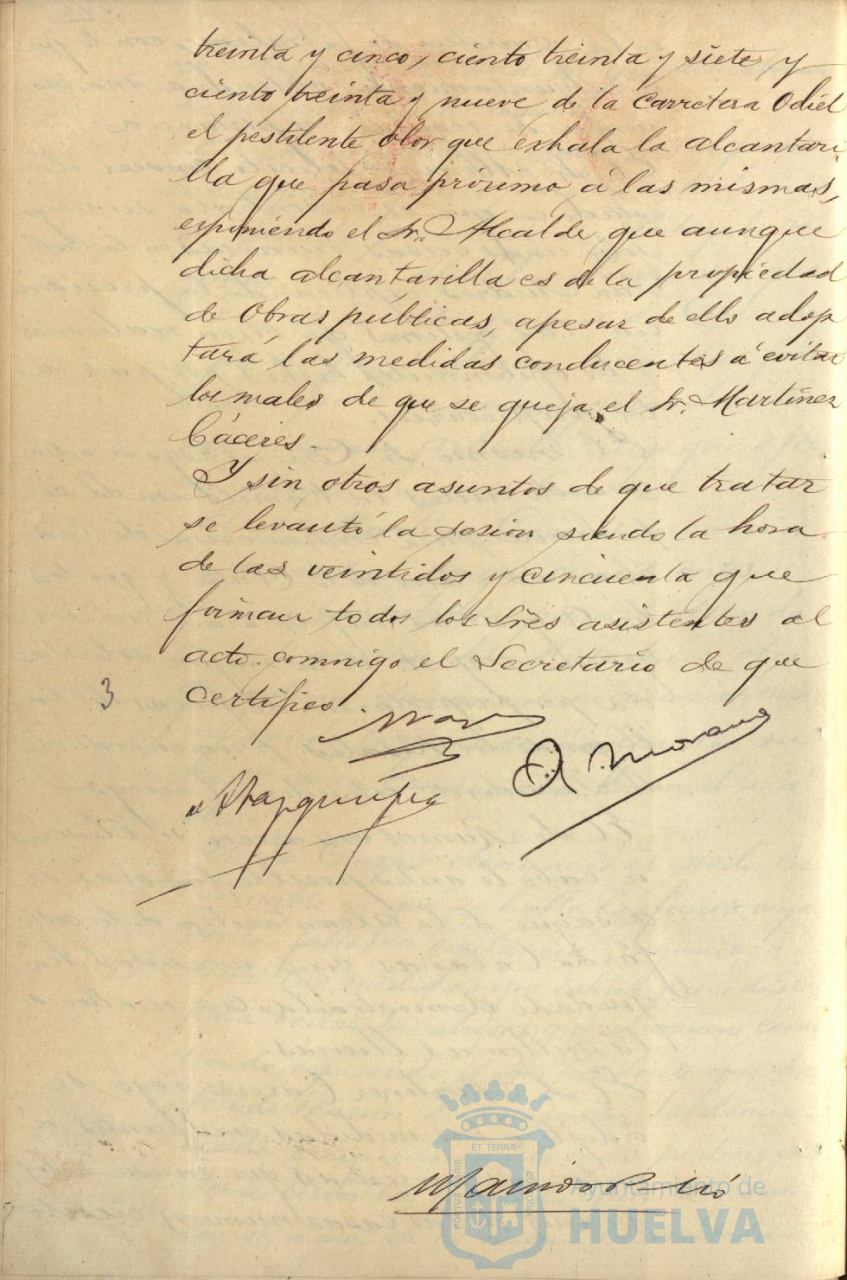 treinta y cinco, ciento treinta y siete y
ciento treinta y nueve de la carretera Odiel
el pestilente olor que exhala la alcantari
lla que pasa próximo á las mismas,
exponiendo el Sr. Alcalde que aunque
dicha alcantarilla es de la propiedad
de Obras públicas, apesar de ello adop
tará las medidas conducentes á evitar
los males de que se queja el Sr. Martínez
Cáceres.
Y sin otros asuntos de que tratar
se levantó la sesion siendo la hora
de las veintidos y cincuenta que
firman todos los Sres asistentes al
acto conmigo el Secretario de que
3
certifico.
A Moreno
ET TERRÆ
Ayuntamiento de
HUELVA